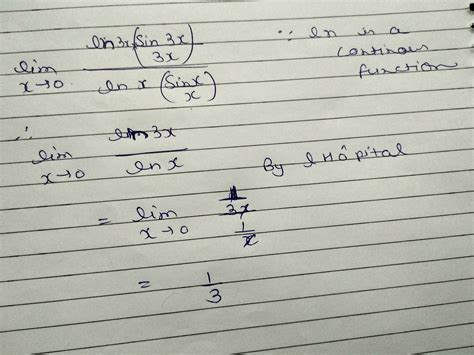 lim x→0 ln 3x (Sin 3x / 3x) / ln x (Sin x / x) ∵ ln is a continous function
∴ lim x→0 ln 3x / ln x By l Hôpital
= lim x→0 1/3x / 1/x
= 1/3